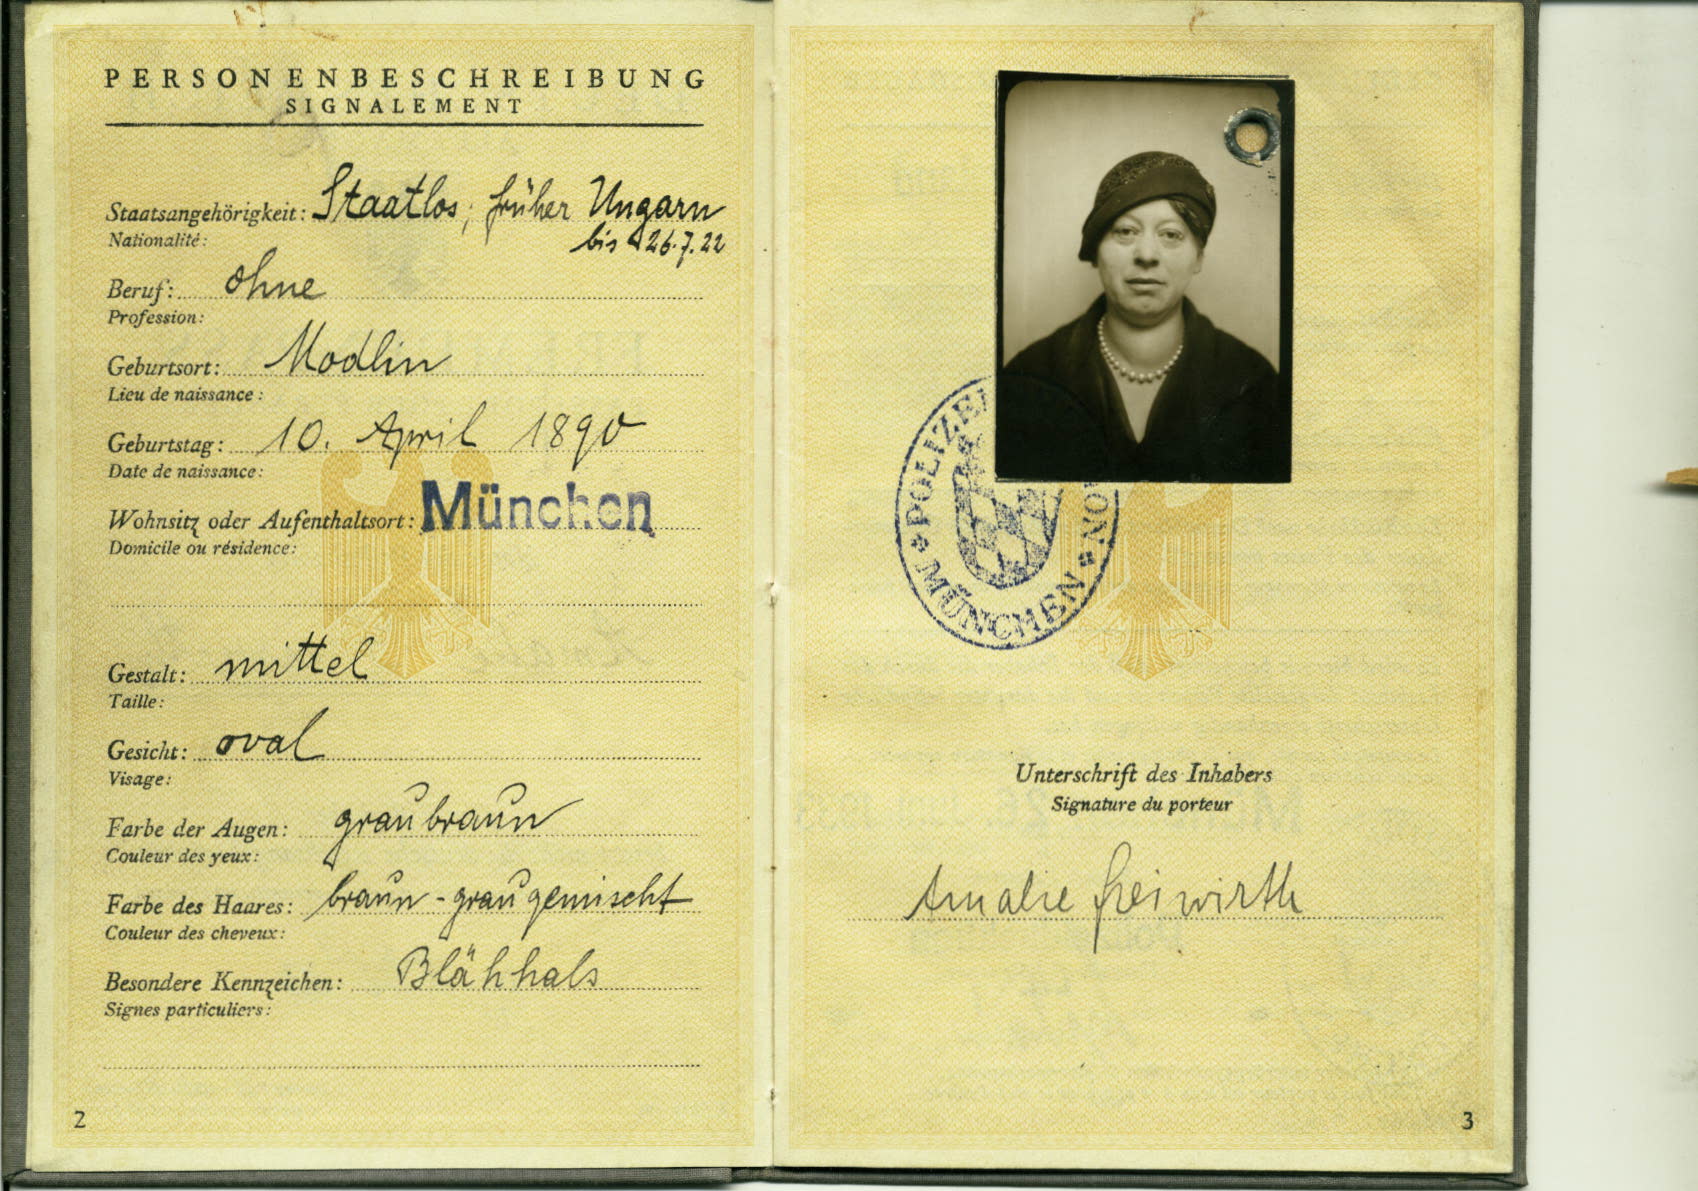 PERSONENBESCHREIBUNG
SIGNALEMENT
Staatsangehörigkeit: Staatlos, früher Ungarn
Nationalité: bis 26.7.22
Beruf: ohne
Profession:
Geburtsort: Modlin
Lieu de naissance:
Geburtstag: 10. April 1890
Date de naissance:
Wohnsitz oder Aufenthaltsort: München
Domicile ou résidence:
Gestalt: mittel
Taille:
Gesicht: oval
Visage:
Farbe der Augen: graubraun
Couleur des yeux:
Farbe des Haares: braun-graugemischt
Couleur des cheveux:
Besondere Kennzeichen: Blähhals
Signes particuliers:
2
POLIZEI
MÜNCHEN
Unterschrift des Inhabers
Signature du porteur
Amalie Freiwirth
3